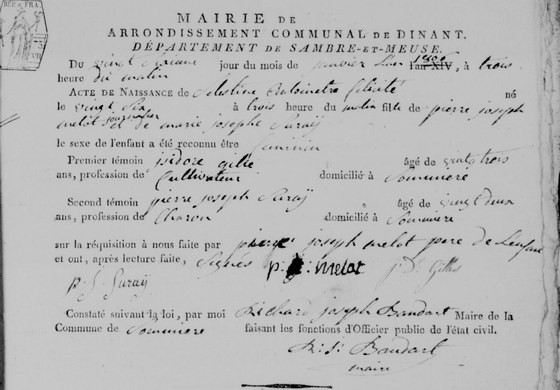 MAIRIE DE
ARRONDISSEMENT COMMUNAL DE DINANT.
DÉPARTEMENT DE SAMBRE-ET-MEUSE.
Du vingt jour du mois de l'an XIV, à trois
heure du matin
ACTE DE NAISSANCE de Celestine Antoinette né
le vingt Six à trois heure du matin fille de pierre joseph
melot journalier et de marie josephe Suraÿ
le sexe de l'enfant a été reconnu être feminin
Premier témoin isidore gille âgé de vingt trois
ans, profession de Cultivateur domicilié à Sommiere
Second témoin pierre joseph Suraÿ âgé de vingt deux
ans, profession de Charon domicilié à Sommiere
sur la réquisition à nous faite par pierre joseph melot pere de Lenfant
et ont, après lecture faite, Signés p: j: melot j: D: Gilles
p. j. Suraij
Constaté suivant la loi, par moi Richard joseph Baudart Maire de la
Commune de Sommiere faisant les fonctions d'Officier public de l'état civil.
R: j: Baudart
maire